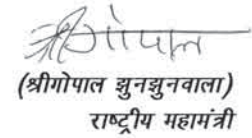 श्रीगोपाल
(श्रीगोपाल झुनझुनवाला)
राष्ट्रीय महामंत्री